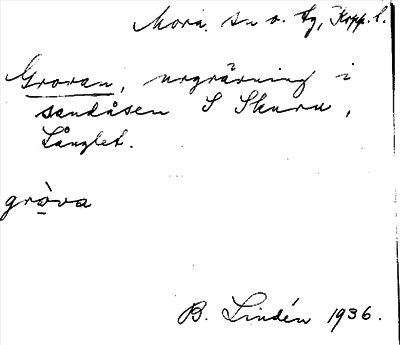 Mora. sn o. tg, Kopp. l.
Grovan, urgrävning i
sandåsen S Skuru,
Långlet.
gròva
B. Lindén 1936.